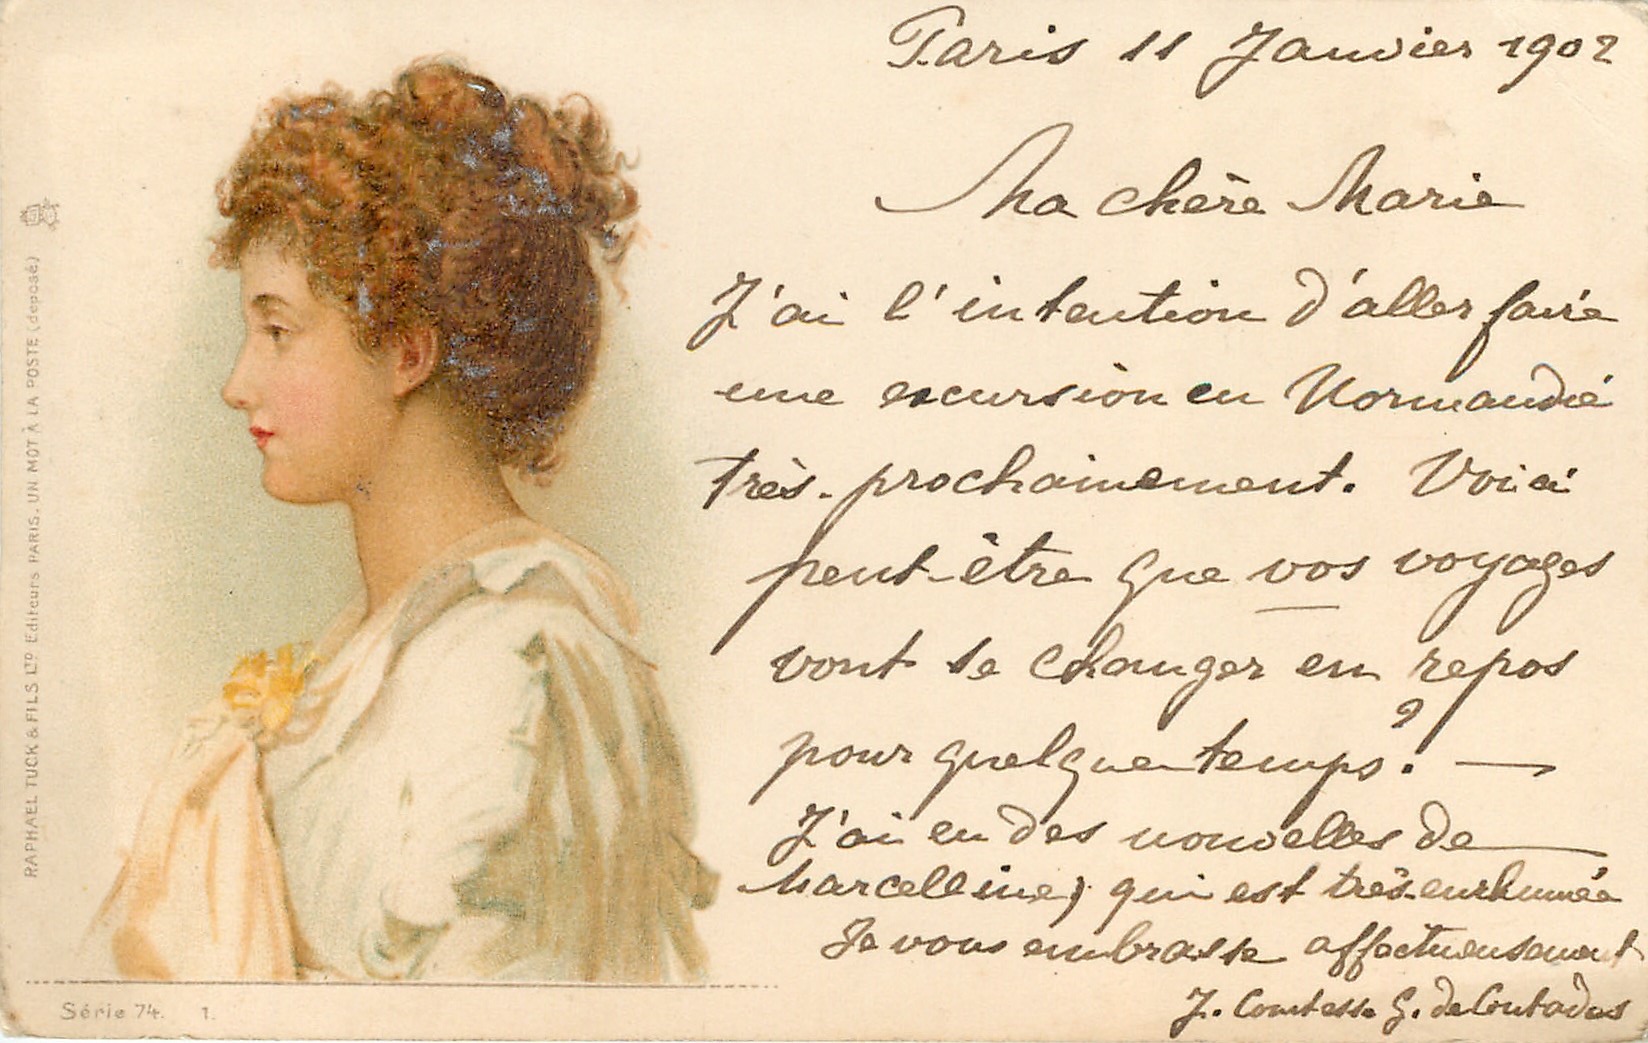 Paris 11 Janvier 1902
Ma chère Marie
J'ai l'intention d'aller faire
une excursion en Normandie
très-prochainement. Voici
peut-être que vos voyages
vont se changer en repos
pour quelque temps? —
J'ai eu des nouvelles de
Marcelline, qui est très-enrhumée
Je vous embrasse affectueusement
J. Comtesse G. de Contades
RAPHAEL TUCK & FILS LTD Editeurs PARIS. UN MOT À LA POSTE (déposé)
Série 74. 1.